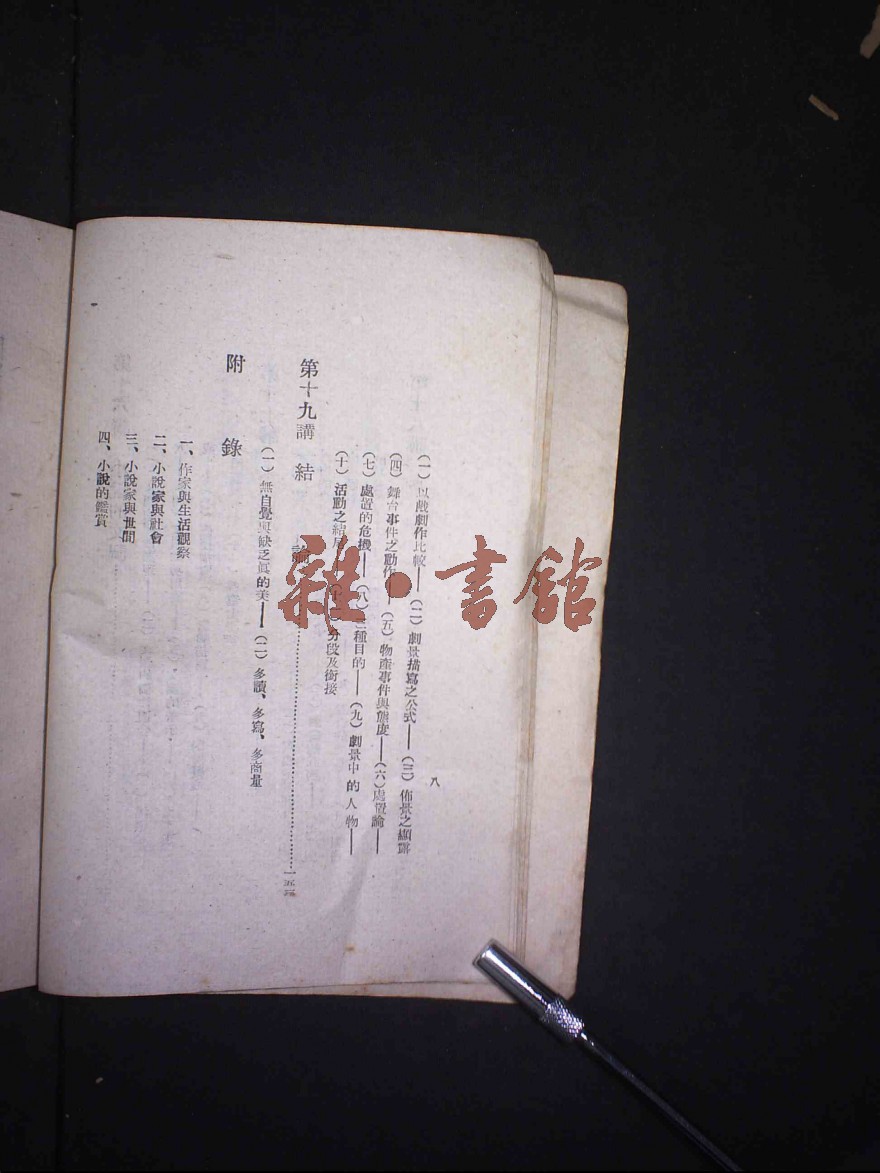 八
(一)以戲劇作比較——(二)劇景描寫之公式——(三)佈景之顯露
(四)舞台事件之動作——(五)物產事件與態度——(六)處置論——
(七)處置的危機——(八)三種目的——(九)劇景中的人物——
(十)活動之結尾 分段及銜接
第十九講 結論……一五
(一)無自覺與缺乏眞的美——(二)多讀、多寫、多商量
附錄
一、作家與生活觀察
二、小說家與社會
三、小說家與世間
四、小說的鑑賞
雜·書館